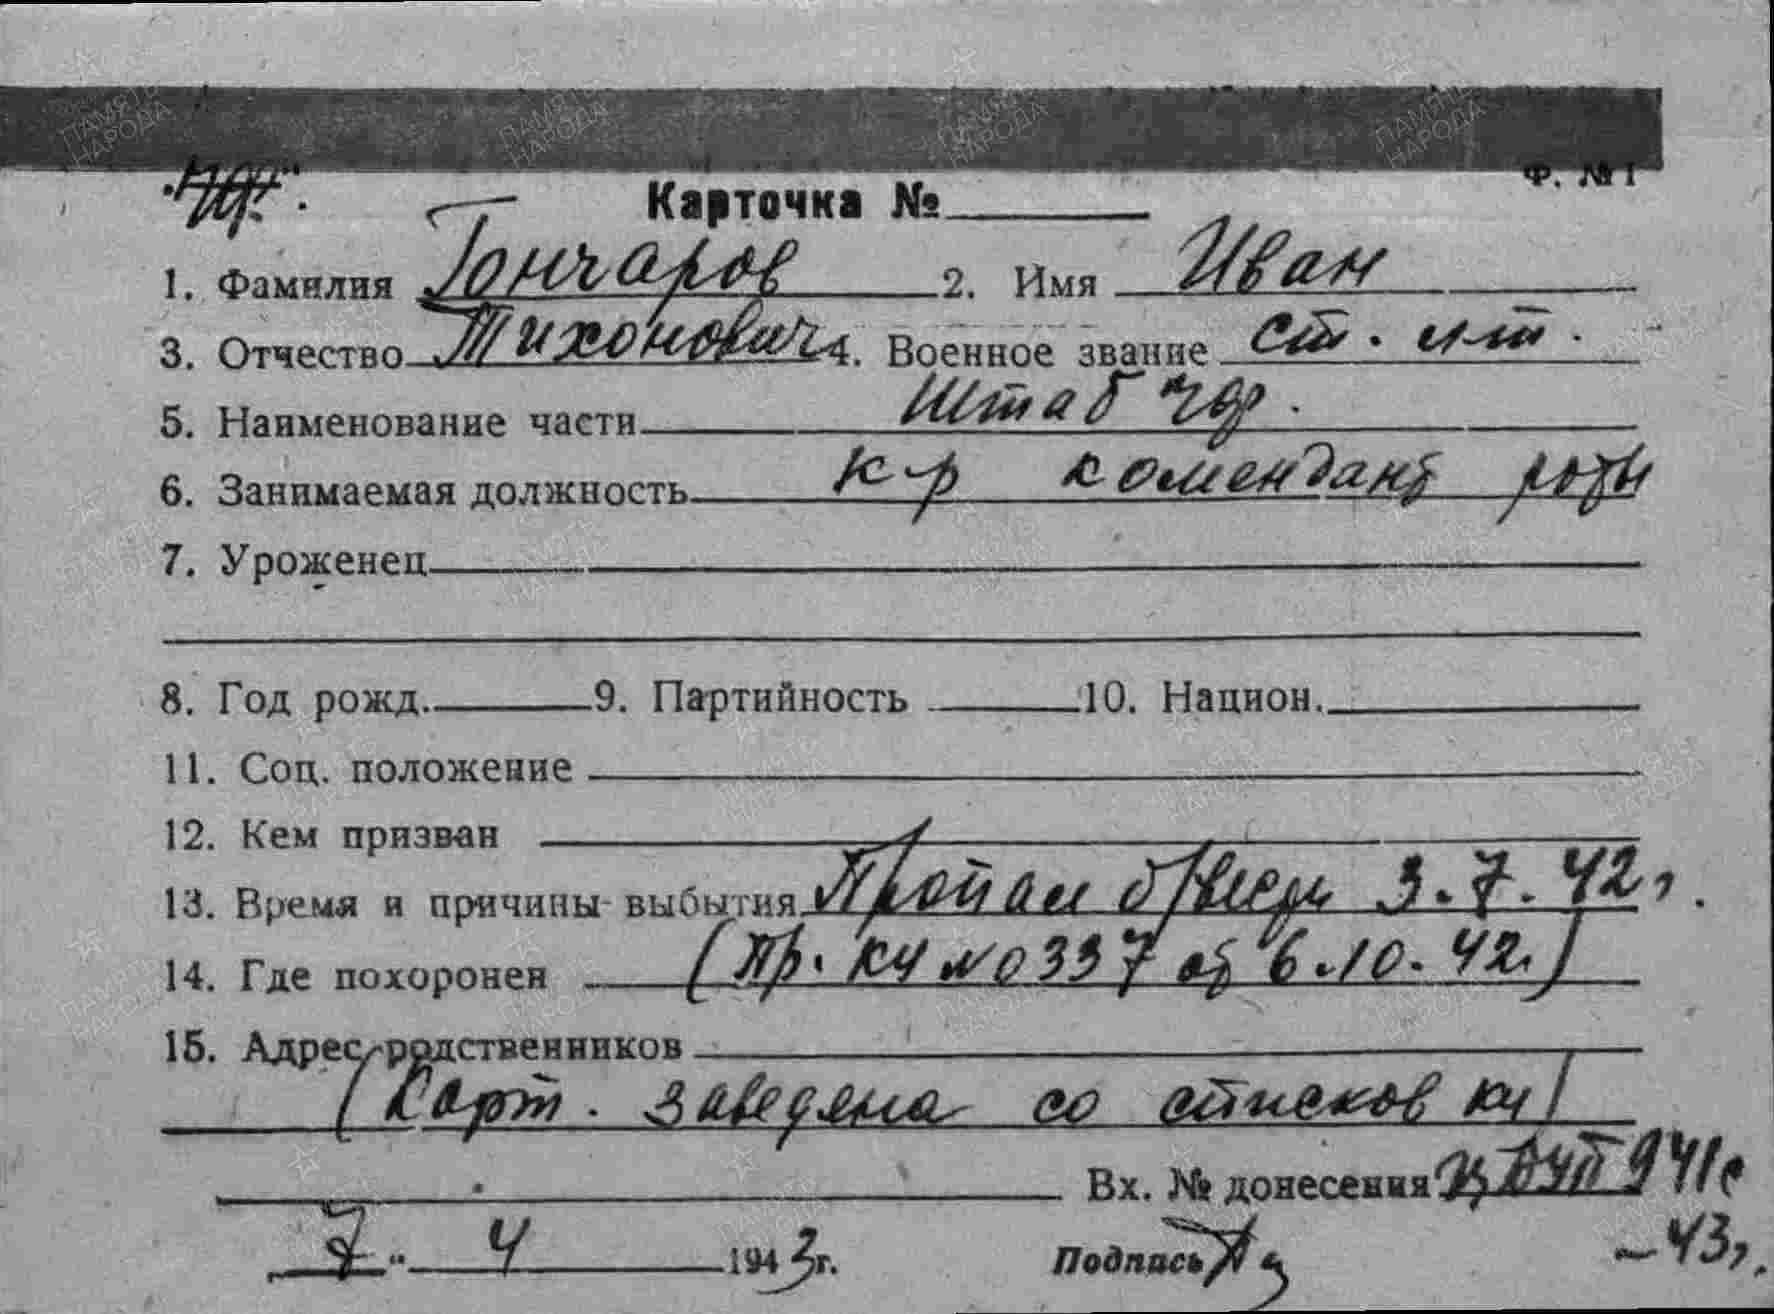 Ф. № 1
Карточка №
1. Фамилия Гончаров 2. Имя Иван
3. Отчество Тихонович 4. Военное звание ст. л-т.
5. Наименование части Штаб ЧФ.
6. Занимаемая должность к-р комендант роты
7. Уроженец
8. Год рожд. 9. Партийность 10. Национ.
11. Соц. положение
12. Кем призван
13. Время и причины выбытия Пропал б/вести 3.7.42г.
14. Где похоронен (Пр. КЧ № 0337 от 6.10.42г.)
15. Адрес родственников
(Карт. заведена со списков КЧ)
Вх. № донесения 941с
7 " 4 1943г. Подпись -43г.